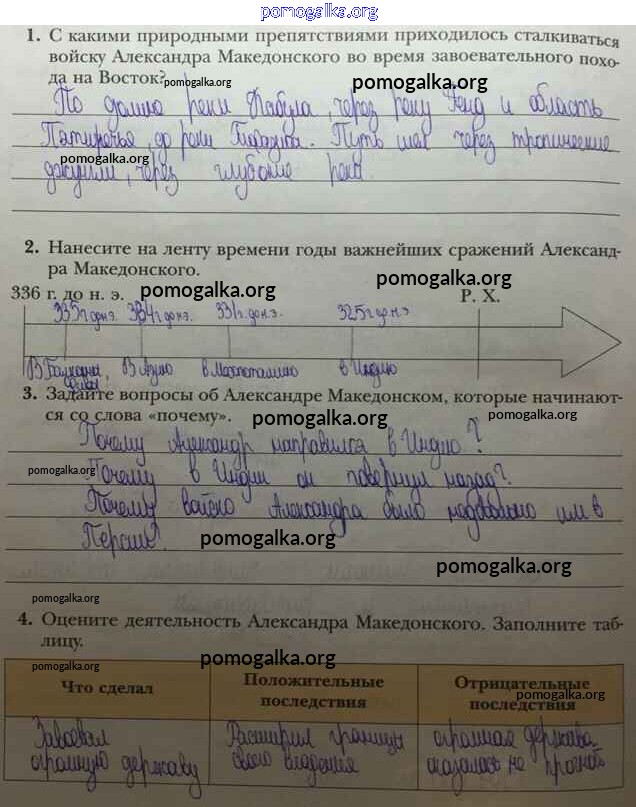 pomogalka.org
1. С какими природными препятствиями приходилось сталкиваться
войску Александра Македонского во время завоевательного похо-
да на Восток?
pomogalka.org pomogalka.org
По долине реки Кабула, через реку Инд и область
Пятиречье, до реки
Путь шел через тропические
pomogalka.org
джунгли, через глубокие реки
2. Нанесите на ленту времени годы важнейших сражений Александ-
ра Македонского.
pomogalka.org
336 г. до н. э.
pomogalka.org
Р. Х.
335 г до н.э. 334 г до н.э. 331 г. до н.э. 325 г до н.э
В Балканы, Фивы В Азию в Месопотамию в Индию
3. Задайте вопросы об Александре Македонском, которые начинают-
ся со слова «почему».
pomogalka.org pomogalka.org
Почему Александр направился в Индию?
pomogalka.org
Почему в Индии он повернул назад?
Почему войско Александра было недовольно им в
Персии?
pomogalka.org
pomogalka.org
pomogalka.org
4. Оцените деятельность Александра Македонского. Заполните таб-
лицу.
pomogalka.org pomogalka.org
Что сделал Положительные последствия Отрицательные последствия
pomogalka.org
Завоевал Расширил границы огромная держава
огромную державу своего владения оказалась не прочной
pomogalka.org